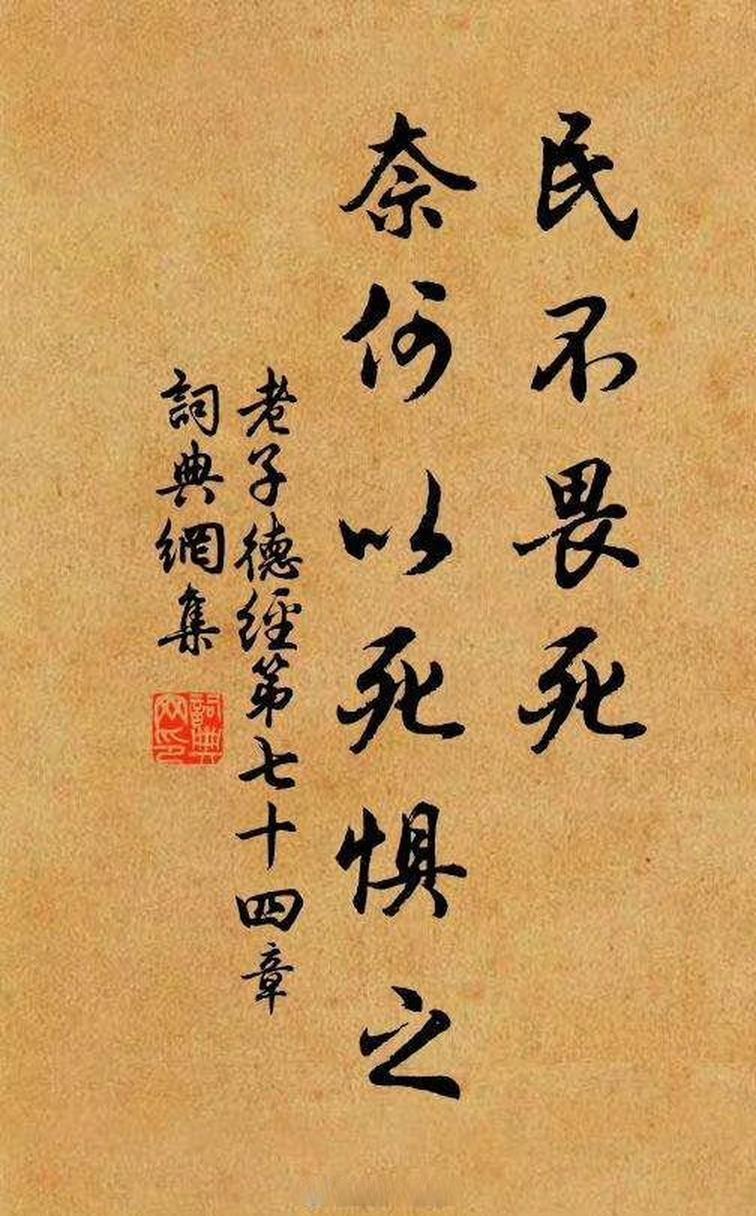 民不畏死
奈何以死惧之
老子德经第七十四章
詞典網集